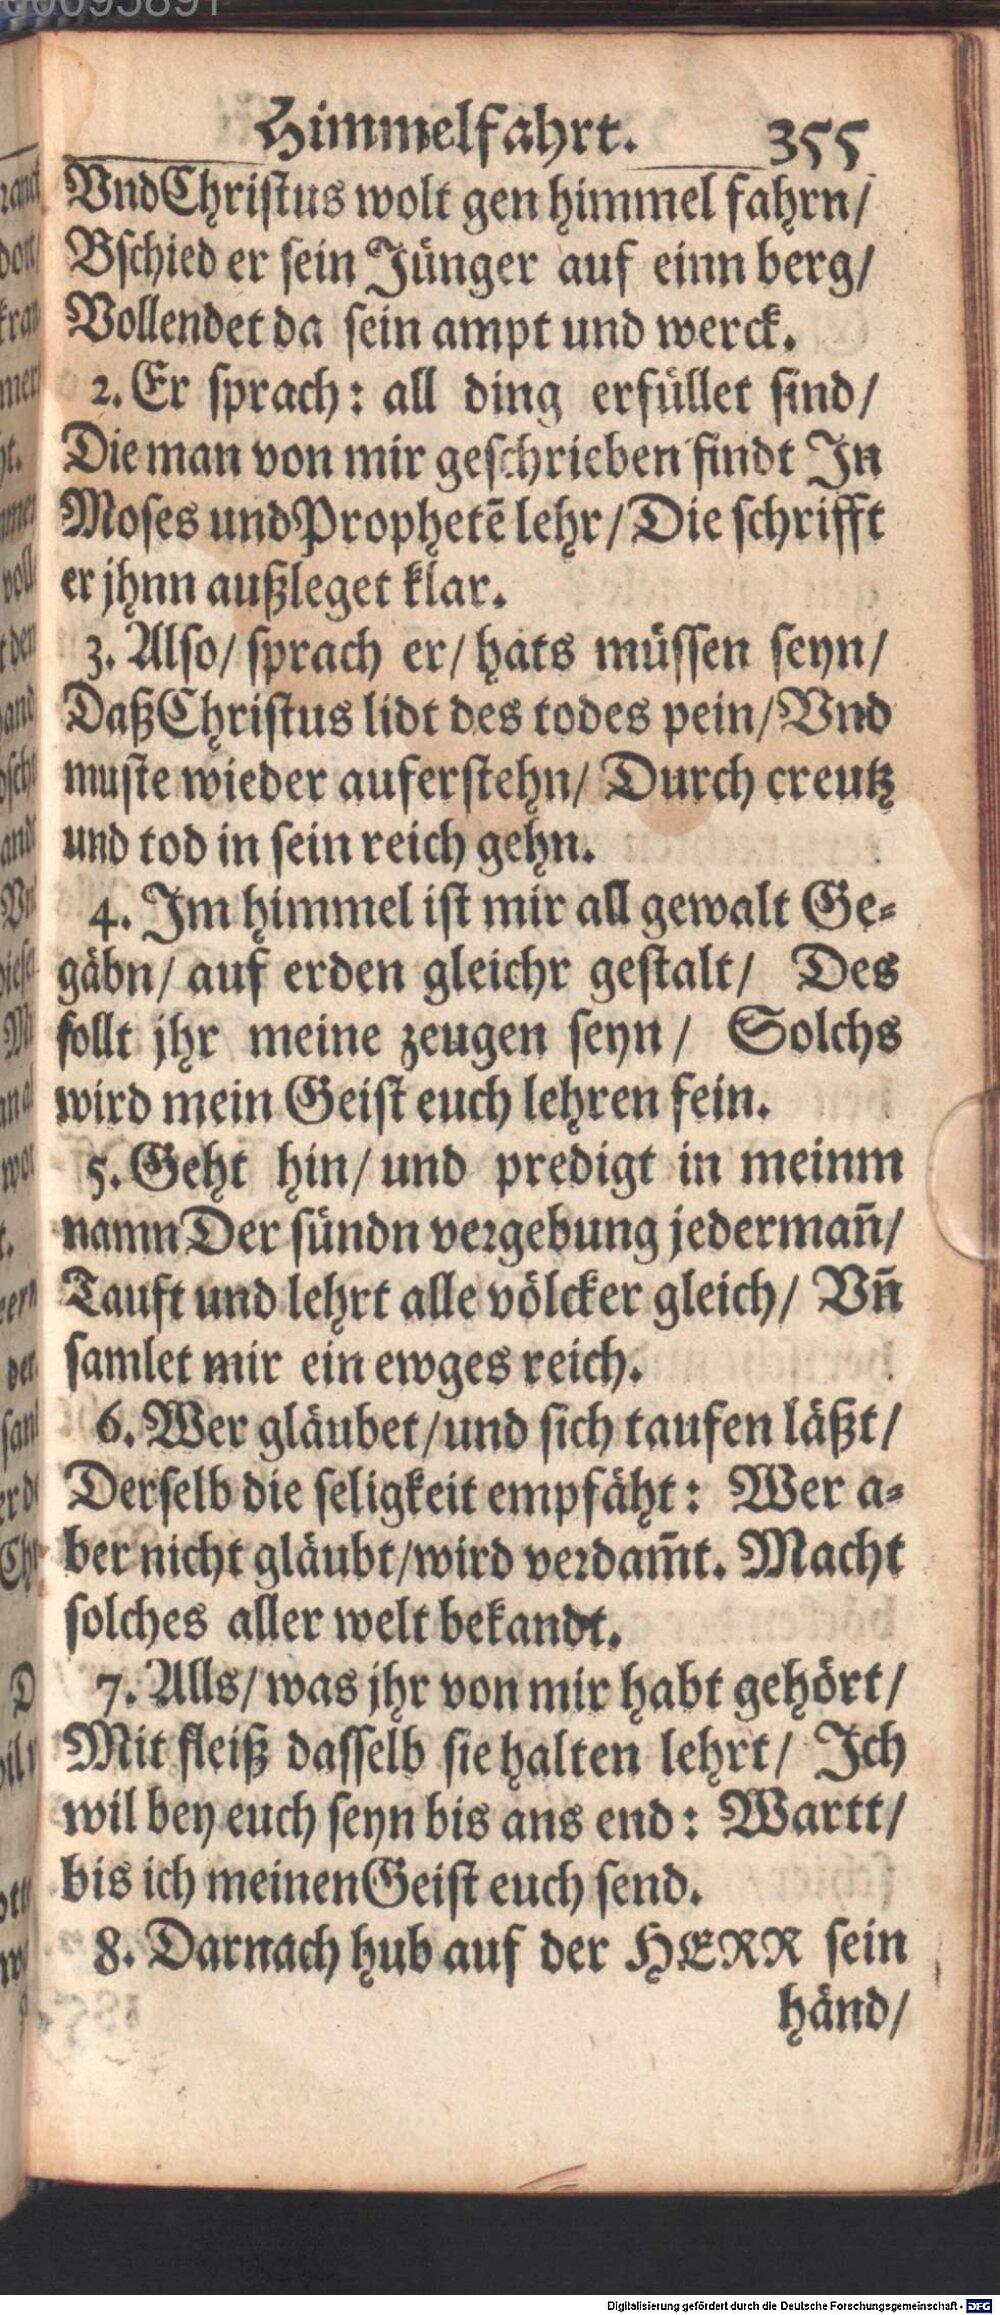 Himmelfahrt. 355
Vnd Christus wolt gen himmel fahrn/
Bschied er sein Jünger auf einn berg/
Vollendet da sein ampt und werck.
2. Er sprach: all ding erfüllet sind/
Die man von mir geschrieben findt In
Moses und Prophetē lehr/ Die schrifft
er jhnn außleget klar.
3. Also/ sprach er/ hats müssen seyn/
Daß Christus lidt des todes pein/ Vnd
muste wieder auferstehn/ Durch creutz
und tod in sein reich gehn.
4. Im himmel ist mir all gewalt Ge-
gäbn/ auf erden gleichr gestalt/ Des
sollt jhr meine zeugen seyn/ Solchs
wird mein Geist euch lehren fein.
5. Geht hin/ und predigt in meinm
namn Der sündn vergebung jederman̄/
Tauft und lehrt alle völcker gleich/ Vn̄
samlet mir ein ewges reich.
6. Wer gläubet/ und sich taufen läßt/
Derselb die seligkeit empfäht: Wer a-
ber nicht gläubt/ wird verdam̄t. Macht
solches aller welt bekandt.
7. Alls/ was jhr von mir habt gehört/
Mit fleiß dasselb sie halten lehrt/ Ich
wil bey euch seyn bis ans end: Wartt/
bis ich meinen Geist euch send.
8. Darnach hub auf der HERR sein
händ/
Digitalisierung gefördert durch die Deutsche Forschungsgemeinschaft - DFG